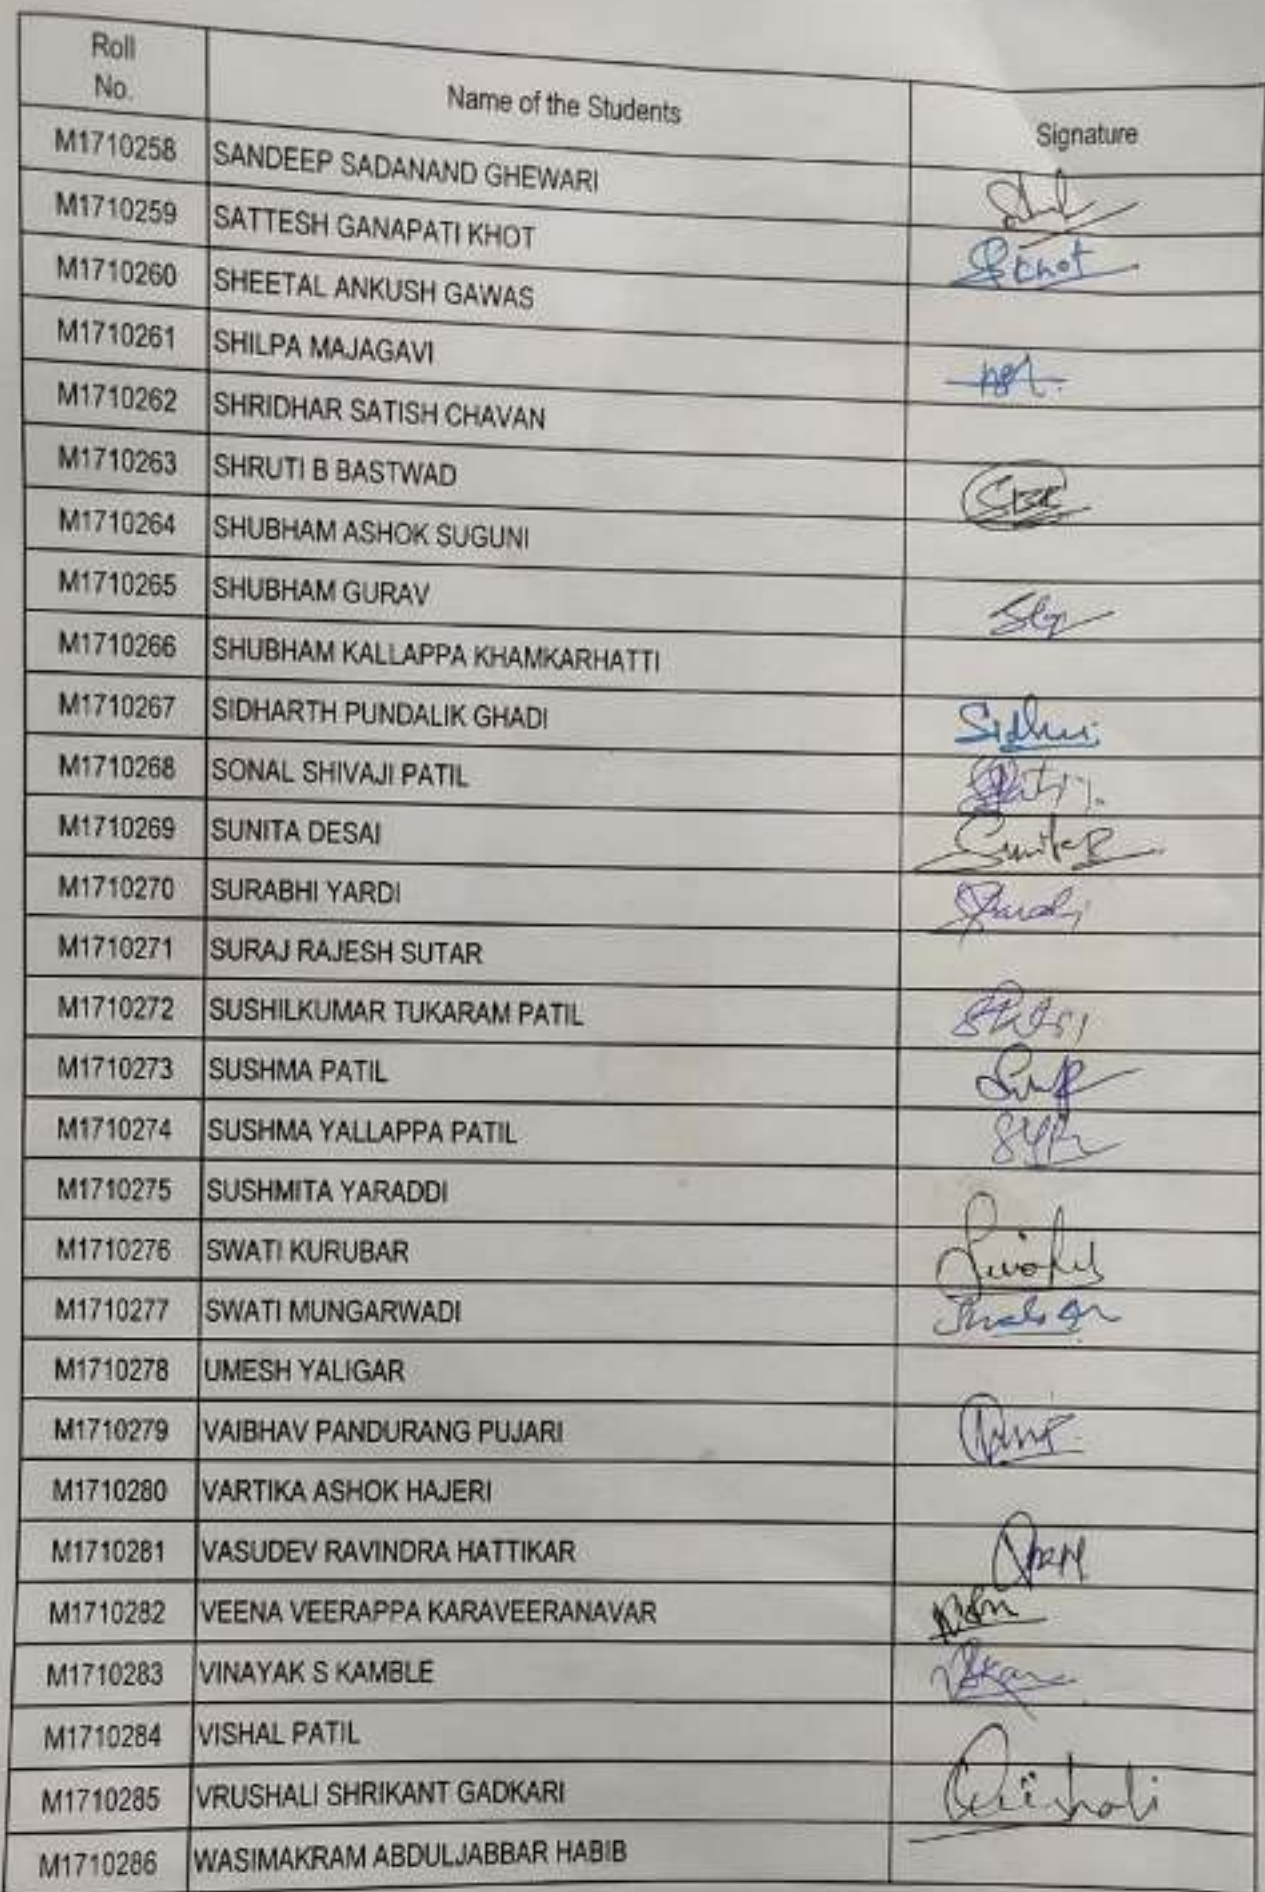 Roll No. Name of the Students Signature
M1710258 SANDEEP SADANAND GHEWARI
M1710259 SATTESH GANAPATI KHOT SKhot
M1710260 SHEETAL ANKUSH GAWAS
M1710261 SHILPA MAJAGAVI
M1710262 SHRIDHAR SATISH CHAVAN
M1710263 SHRUTI B BASTWAD
M1710264 SHUBHAM ASHOK SUGUNI
M1710265 SHUBHAM GURAV
M1710266 SHUBHAM KALLAPPA KHAMKARHATTI
M1710267 SIDHARTH PUNDALIK GHADI
M1710268 SONAL SHIVAJI PATIL
M1710269 SUNITA DESAI
M1710270 SURABHI YARDI
M1710271 SURAJ RAJESH SUTAR
M1710272 SUSHILKUMAR TUKARAM PATIL
M1710273 SUSHMA PATIL
M1710274 SUSHMA YALLAPPA PATIL
M1710275 SUSHMITA YARADDI
M1710276 SWATI KURUBAR
M1710277 SWATI MUNGARWADI
M1710278 UMESH YALIGAR
M1710279 VAIBHAV PANDURANG PUJARI
M1710280 VARTIKA ASHOK HAJERI
M1710281 VASUDEV RAVINDRA HATTIKAR
M1710282 VEENA VEERAPPA KARAVEERANAVAR
M1710283 VINAYAK S KAMBLE
M1710284 VISHAL PATIL
M1710285 VRUSHALI SHRIKANT GADKARI
M1710286 WASIMAKRAM ABDULJABBAR HABIB